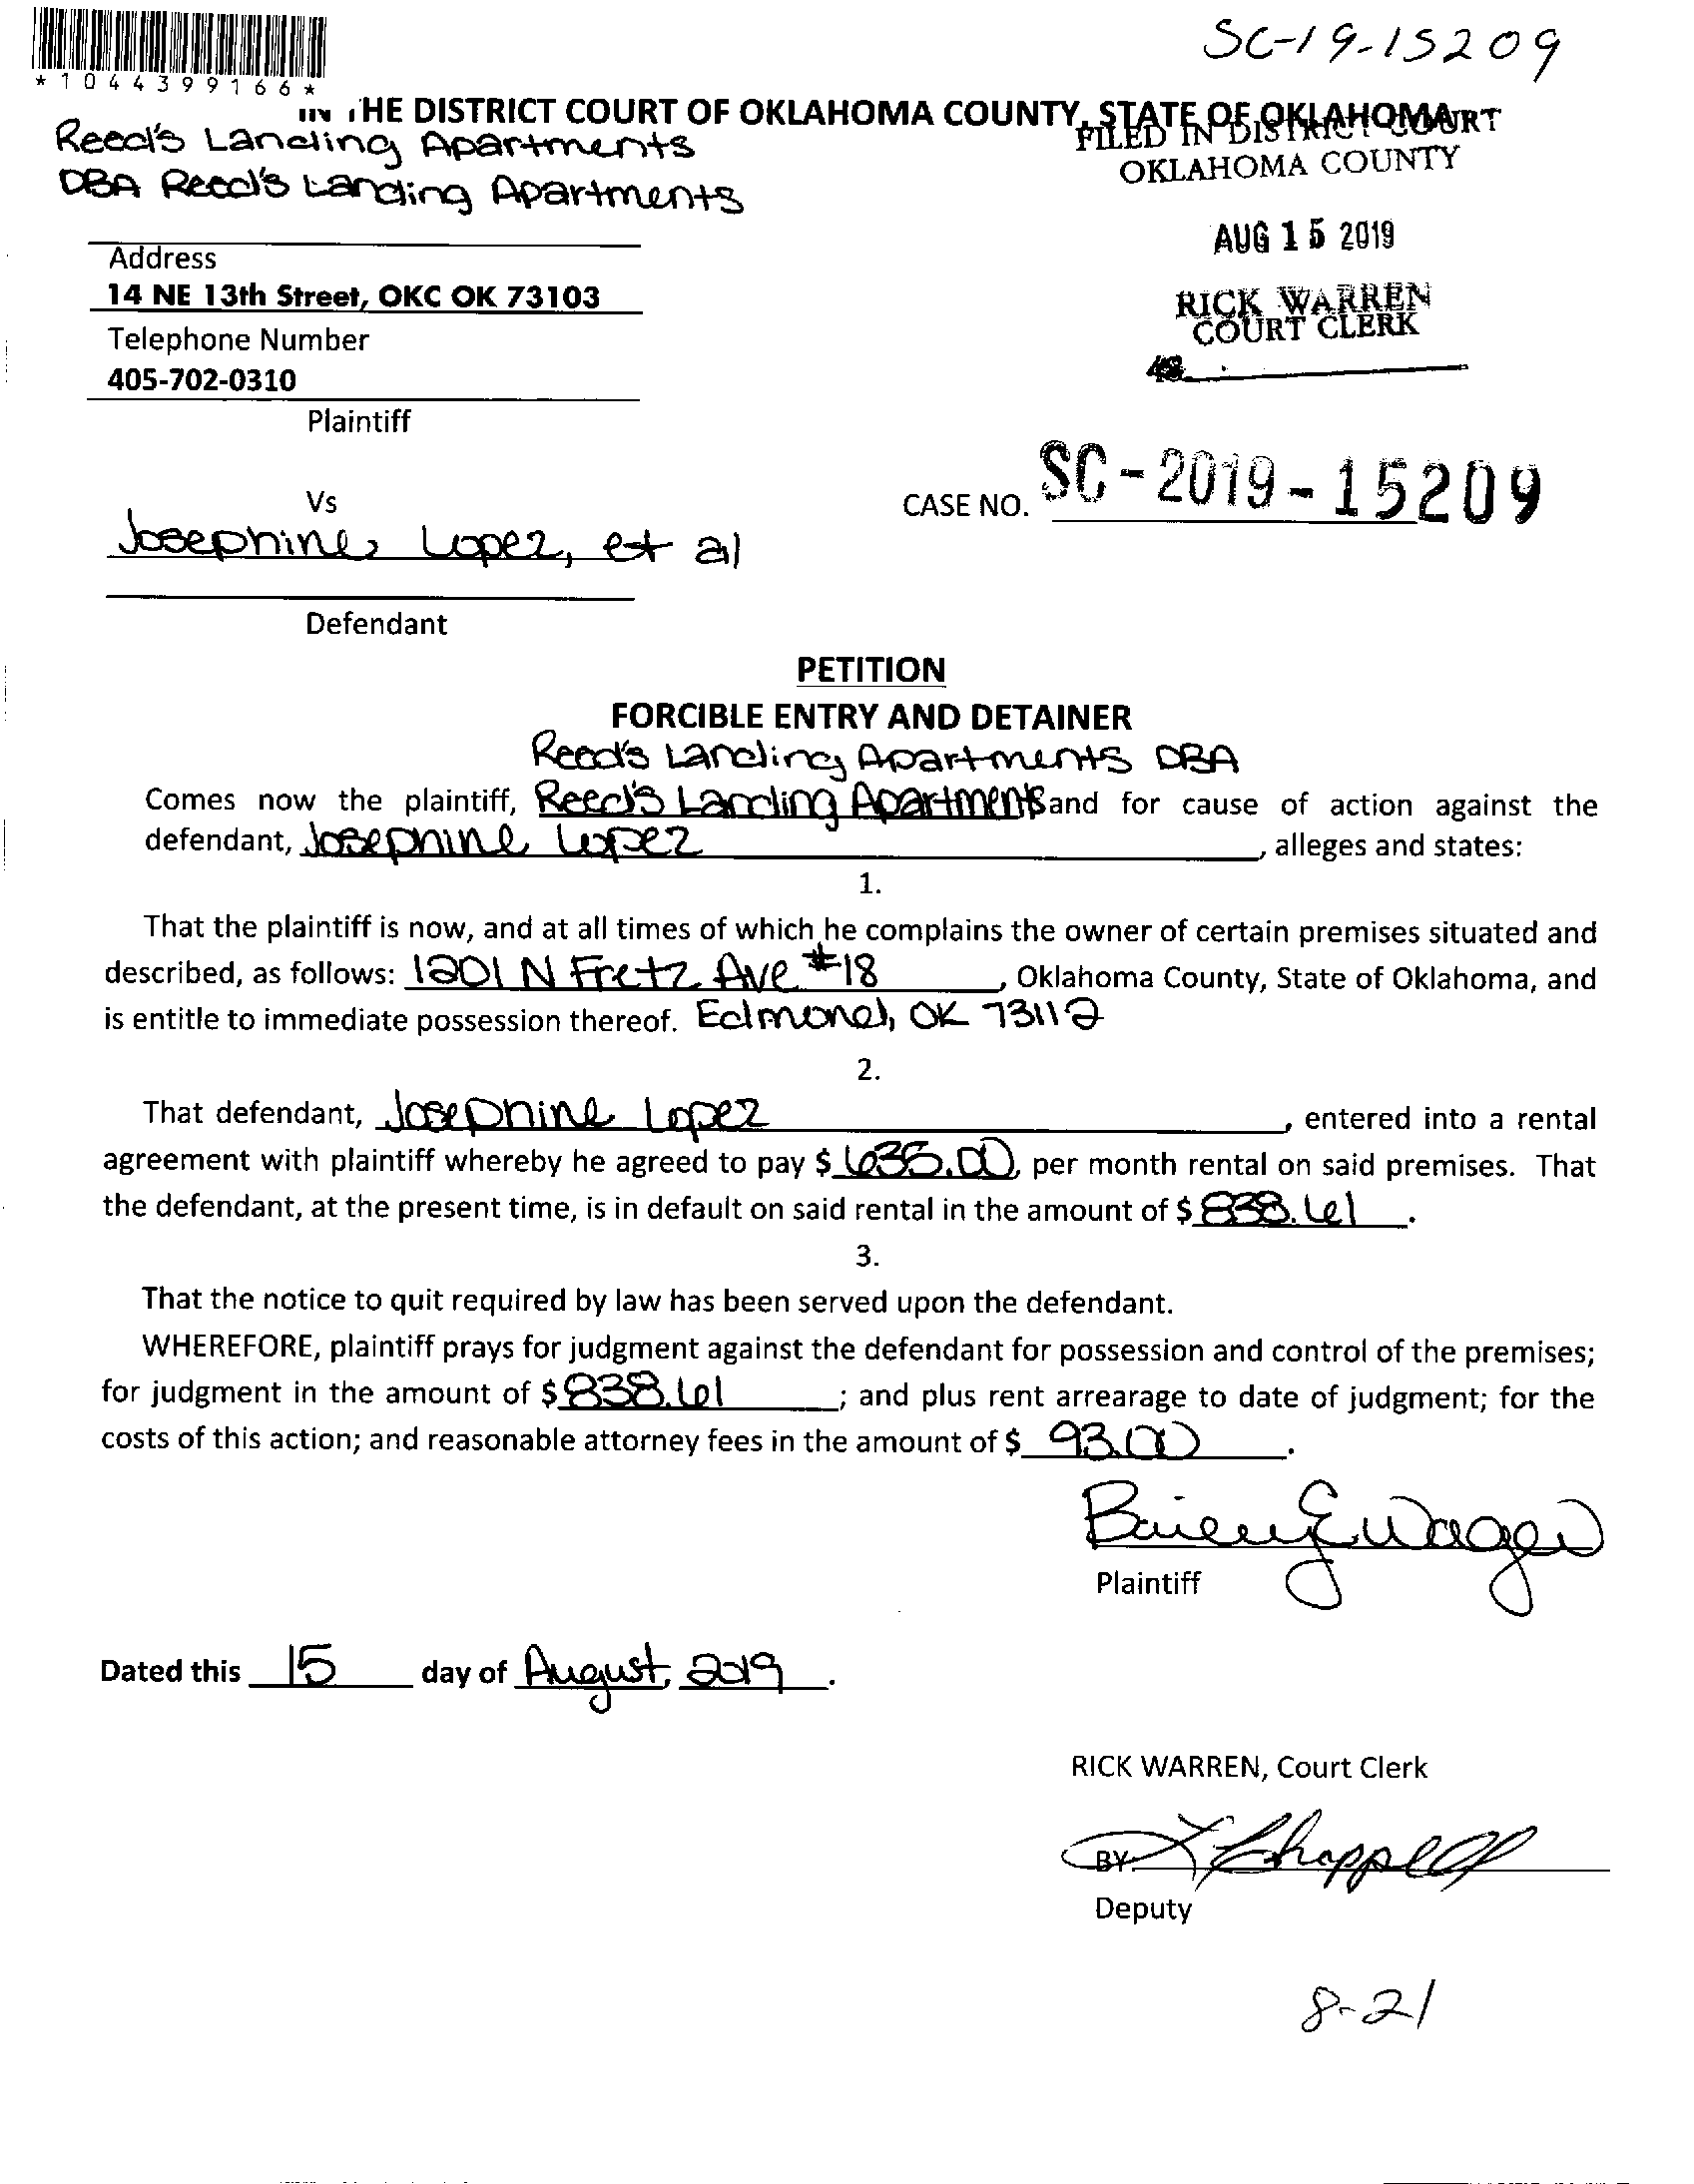 SC-19-15209
*1044399166*
IN THE DISTRICT COURT OF OKLAHOMA COUNTY, STATE OF OKLAHOMA
FILED IN DISTRICT COURT
OKLAHOMA COUNTY
Reed's Landing Apartments
DBA Reed's Landing Apartments
AUG 15 2019
RICK WARREN
COURT CLERK
Address
14 NE 13th Street, OKC OK 73103
Telephone Number
405-702-0310
Plaintiff
Vs
CASE NO. SC-2019-15209
Josephine Lopez, et al
Defendant
PETITION
FORCIBLE ENTRY AND DETAINER
Reed's Landing Apartments DBA
Comes now the plaintiff, Reed's Landing Apartments and for cause of action against the
defendant, Josephine Lopez, alleges and states:
1.
That the plaintiff is now, and at all times of which he complains the owner of certain premises situated and
described, as follows: 1201 N Fretz Ave #18, Oklahoma County, State of Oklahoma, and
is entitle to immediate possession thereof. Edmond, OK 73112
2.
That defendant, Josephine Lopez, entered into a rental
agreement with plaintiff whereby he agreed to pay $ 635.00, per month rental on said premises. That
the defendant, at the present time, is in default on said rental in the amount of $ 838.61.
3.
That the notice to quit required by law has been served upon the defendant.
WHEREFORE, plaintiff prays for judgment against the defendant for possession and control of the premises;
for judgment in the amount of $ 838.61; and plus rent arrearage to date of judgment; for the
costs of this action; and reasonable attorney fees in the amount of $ 93.00.
Plaintiff
Dated this 15 day of August, 2019.
RICK WARREN, Court Clerk
BY: Chappell
Deputy
8-21